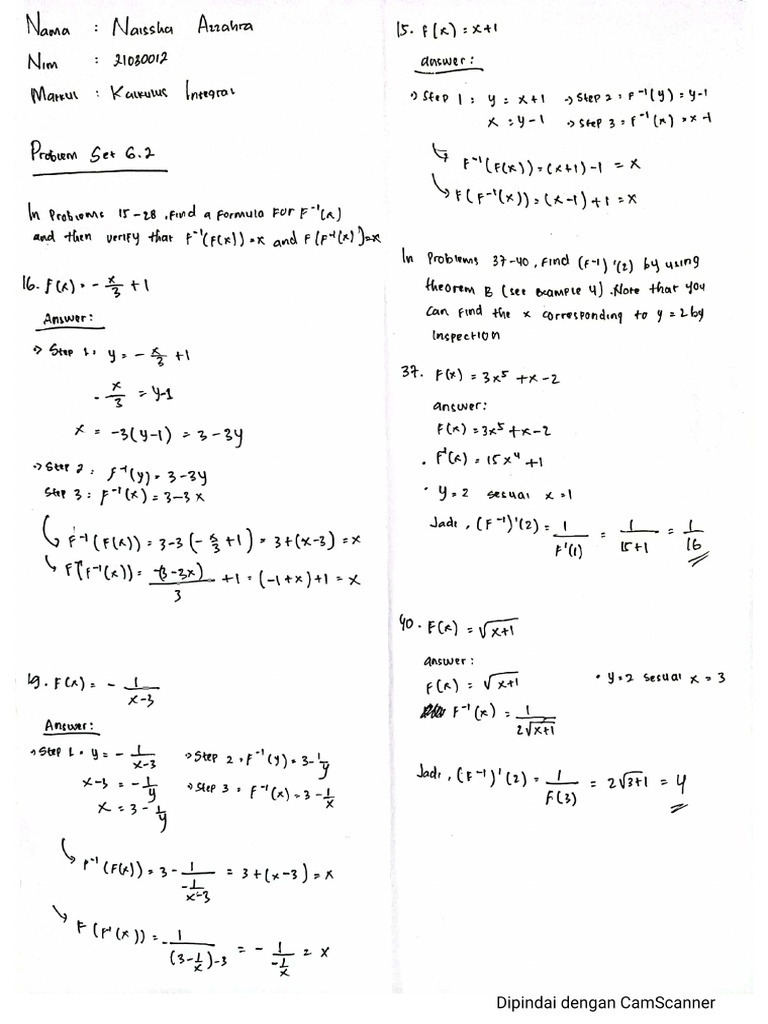 Nama : Naissha Azzahra
Nim : 21030012
Matkul : Kalkulus Integral
Problem Set 6.2
In Problems 15-28, find a formula for F⁻¹(x)
and then verify that F⁻¹(F(x))=x and F(F⁻¹(x))=x
16. f(x) = - x/3 + 1
Answer:
→ Step 1: y = - x/3 + 1
- x/3 = y-1
x = -3(y-1) = 3-3y
→ Step 2: f⁻¹(y) = 3-3y
Step 3: F⁻¹(x) = 3-3x
F⁻¹(F(x)) = 3-3(- x/3 + 1) = 3+(x-3) = x
F(F⁻¹(x)) = -(3-3x)/3 + 1 = (-1+x)+1 = x
19. F(x) = - 1/(x-3)
Answer:
→ Step 1: y = - 1/(x-3) → Step 2: F⁻¹(y) = 3- 1/y
x-3 = - 1/y → Step 3: F⁻¹(x) = 3 - 1/x
x = 3 - 1/y
F⁻¹(F(x)) = 3 - 1/(- 1/(x-3)) = 3+(x-3) = x
F(F⁻¹(x)) = - 1/((3- 1/x)-3) = - 1/(- 1/x) = x
15. F(x) = x+1
answer:
→ Step 1: y = x+1 → Step 2: F⁻¹(y) = y-1
x = y-1 → Step 3: F⁻¹(x) = x-1
F⁻¹(F(x)) = (x+1)-1 = x
F(F⁻¹(x)) = (x-1)+1 = x
In Problems 37-40, find (F⁻¹)'(2) by using
theorem B (see example 4). Note that you
can find the x corresponding to y = 2 by
inspection
37. F(x) = 3x⁵ + x - 2
answer:
F(x) = 3x⁵ + x - 2
• F'(x) = 15x⁴ + 1
• y=2 sesuai x=1
Jadi, (F⁻¹)'(2) = 1/F'(1) = 1/(15+1) = 1/16
40. F(x) = √(x+1)
answer:
F(x) = √(x+1) • y=2 sesuai x = 3
F⁻¹(x) = 1/(2√(x+1))
Jadi, (F⁻¹)'(2) = 1/F(3) = 2√(3+1) = 4
Dipindai dengan CamScanner